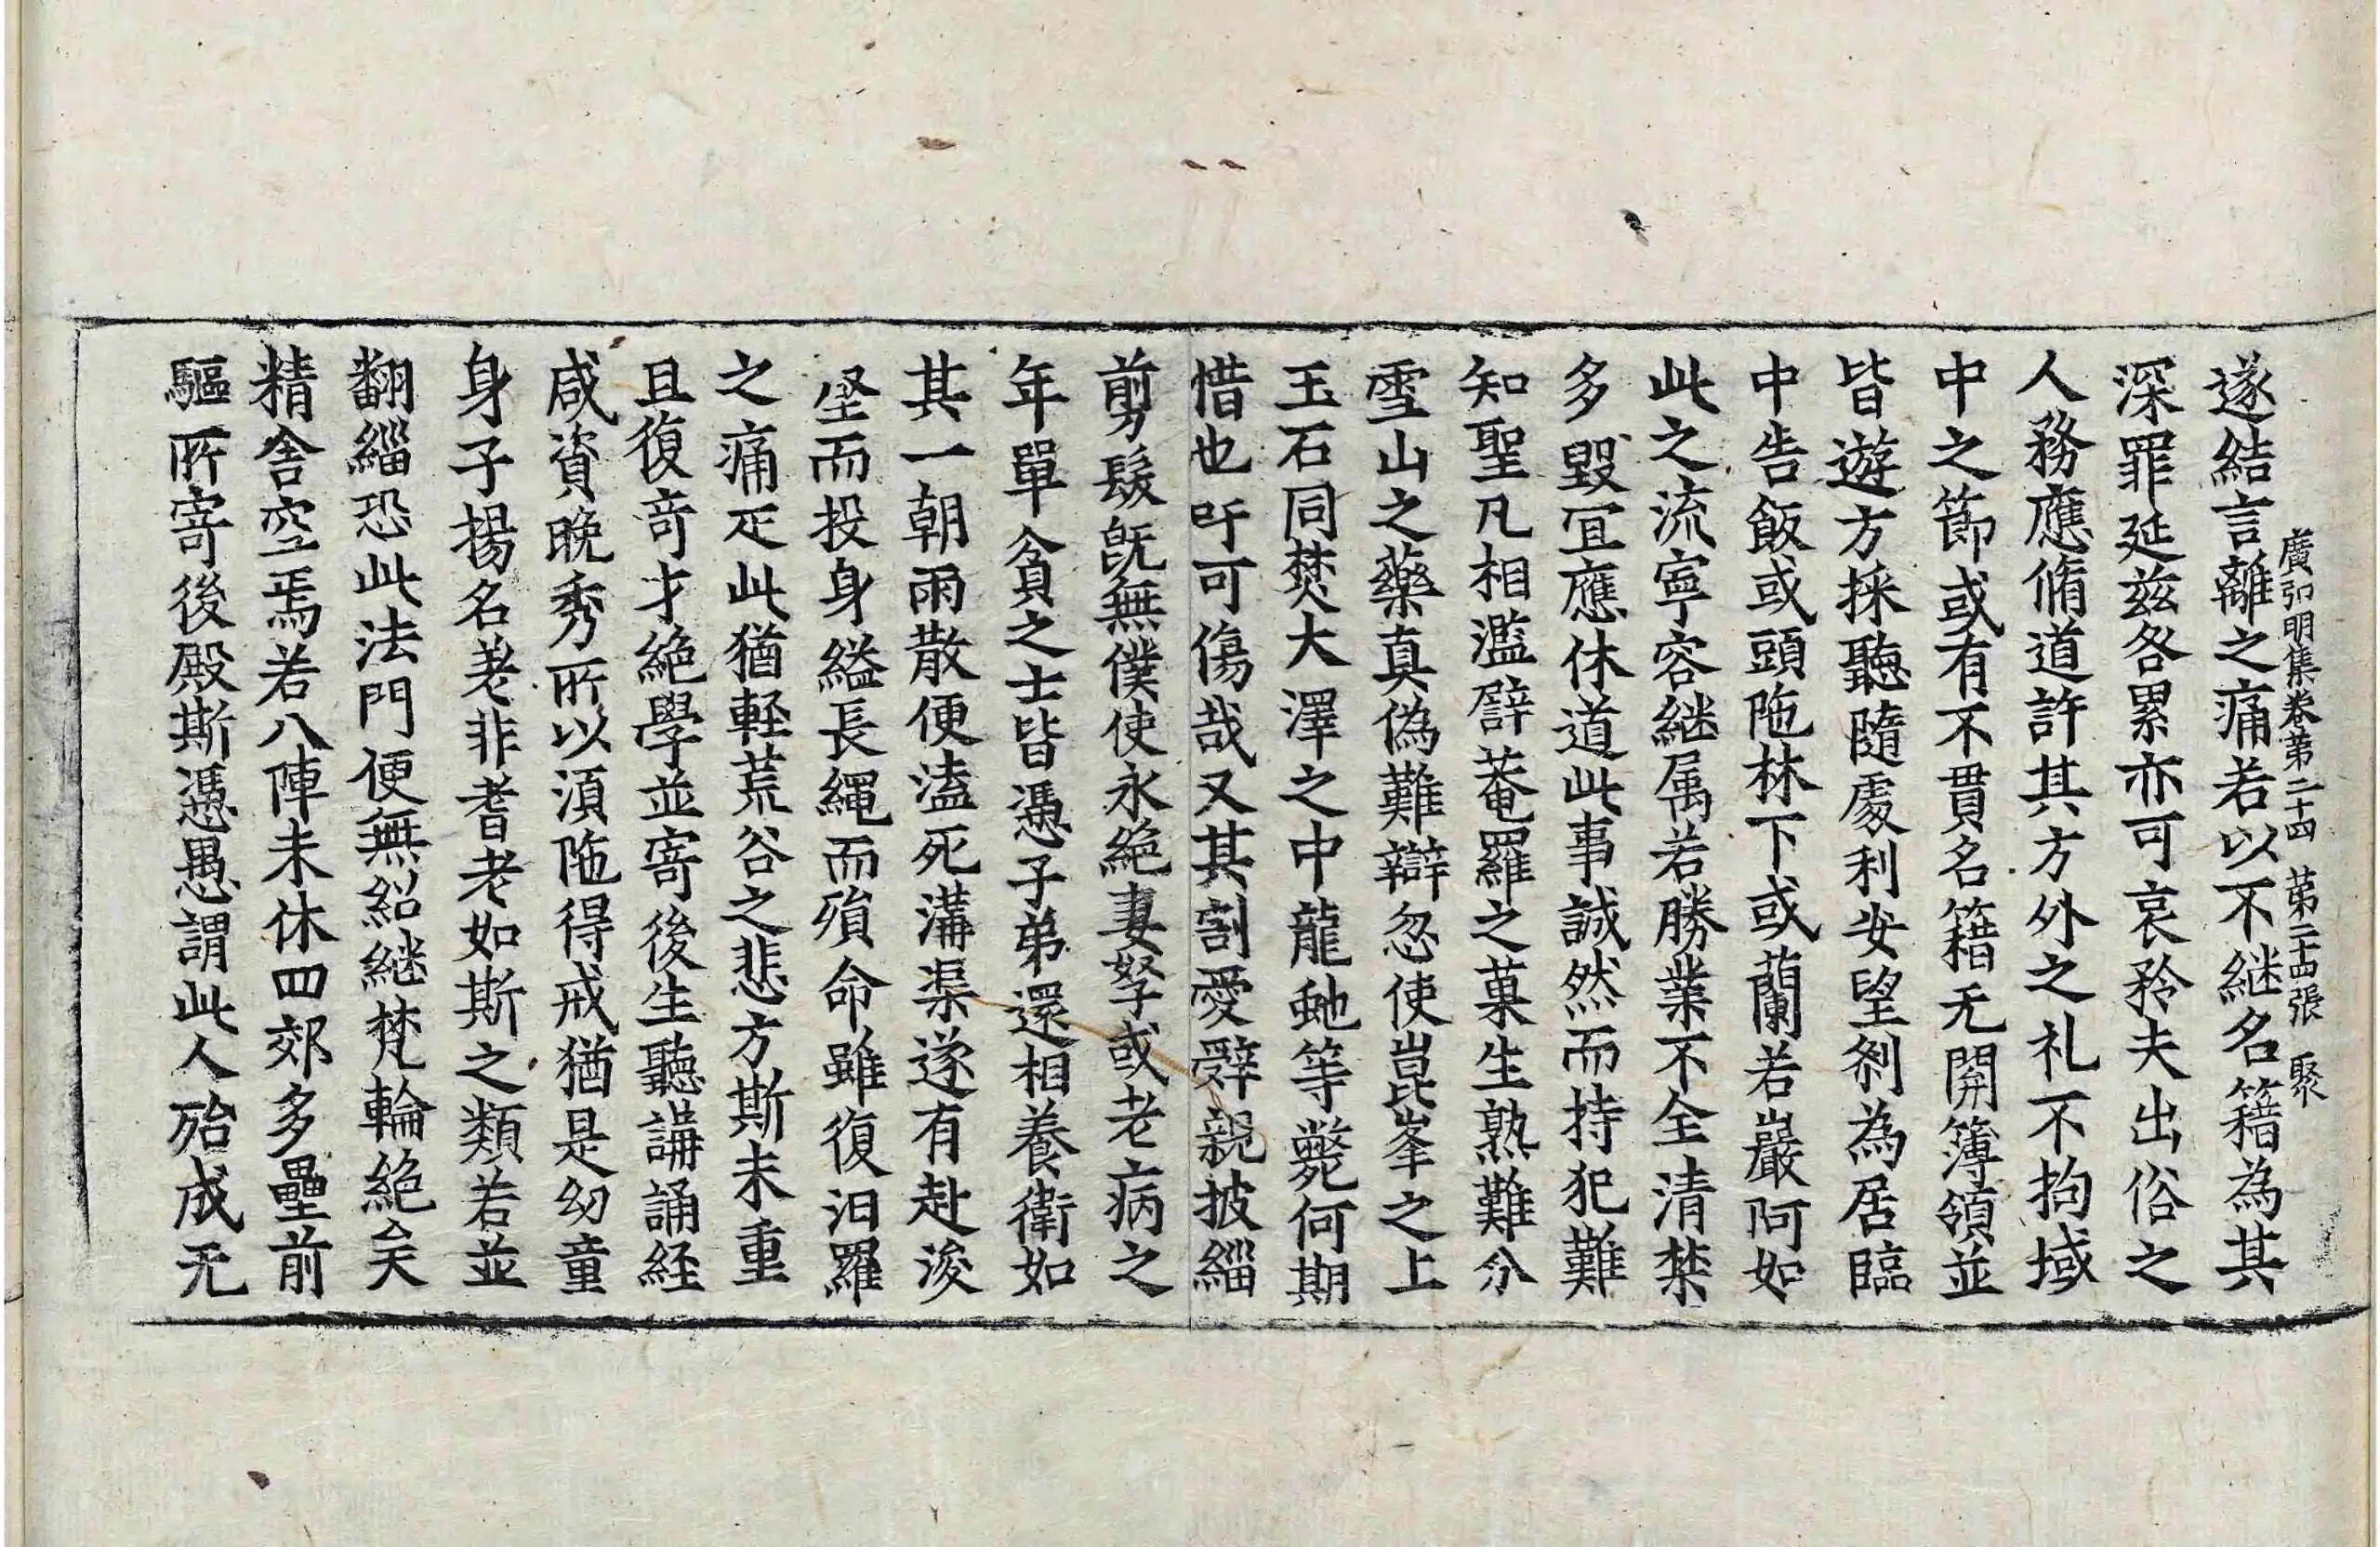 廣弘明集卷苐二十四　苐二十四張　聚
遂結言離之痛若以不継名籍為其
深罪延兹各累亦可哀矜夫出俗之
人務應脩道許其方外之礼不拘域
中之節或有不貫名籍无開簿領並
皆遊方採聽隨處利安望刹為居臨
中告飯或頭陁林下或蘭若巖阿如
此之流寧容継属若勝業不全清禁
多毀冝應休道此事誠然而持犯難
知聖凡相濫譬菴羅之菓生熟難分
雪山之藥真偽難辯忽使崑峯之上
玉石同焚大澤之中龍虵等斃何期
惜也吁可傷哉又其割愛辝親披緇
剪髮旣無僕使永絶妻孥或老病之
年單貧之士皆憑子弟還相養衛如
其一朝雨散便溘死溝渠遂有赴浚
壑而投身縊長繩而殞命雖復汨羅
之痛疋此猶軽荒谷之悲方斯未重
且復竒才絶學並寄後生聽講誦経
咸資晚秀所以湏陁得戒猶是幼童
身子揚名未非耆老如斯之類若並
翻緇恐此法門便無紹継梵輪絶矣
精舍空焉若八陣未休四郊多壘前
驅所寄後殿斯憑愚謂此人殆成无